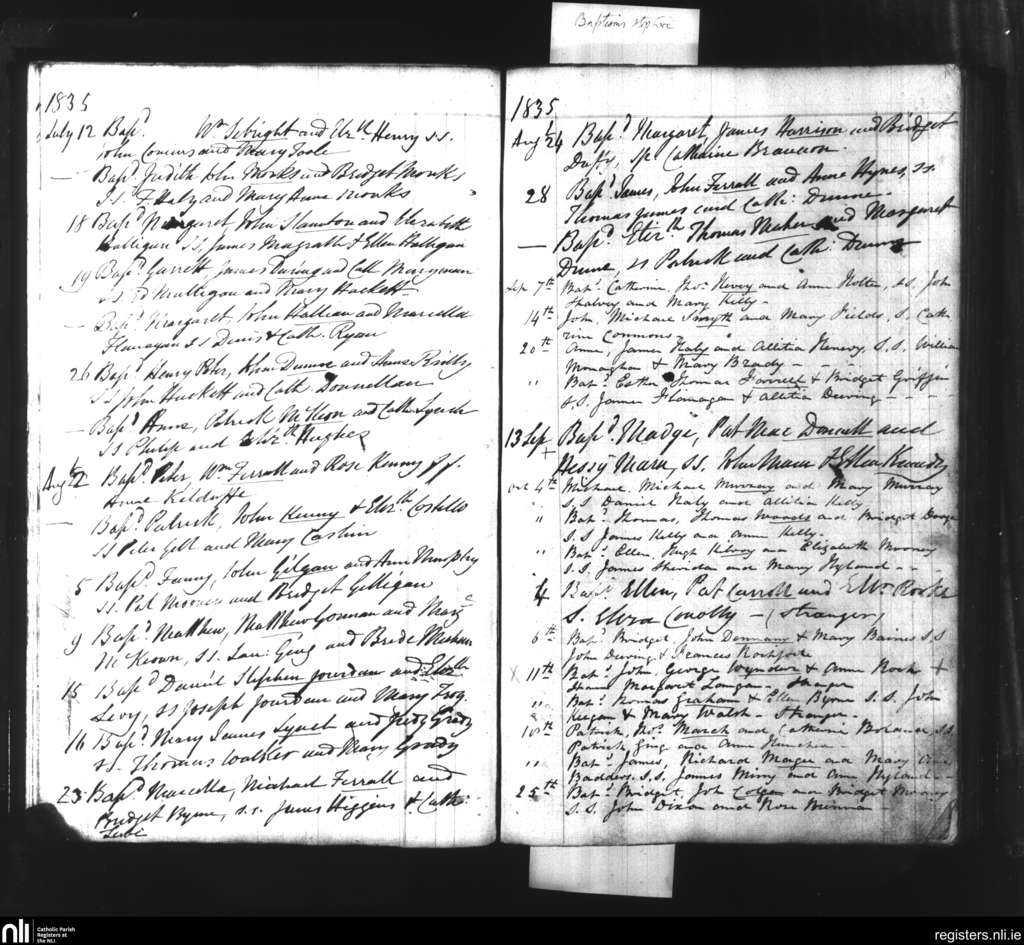 Baptisms
1835
July 12 Bapd. Wm Sebright and Elizth Henry ss.
John Connors and Mary Toole
— Bapd. Judith John Monks and Bridget Monks
Ss. F. Healy and Mary Anne Monks
18 Bapd Margaret John Staunton and Elizabeth
Halligan Ss James Magrath & Ellen Halligan
19 Bapd Garrett James Daring and Cath
Ss. Ed Mulligan and Mary Hackett
— Bapd. Margaret, John Hallian and Marcella
Flanagan Ss Denis & Cath. Ryan
26 Bapd Henry Peter, John Dunne and Anne Reilly
Ss John Huckett and Cath. Donnellan
— Bapd Anne, Patrick McKeon and Cath Lynch
Ss Philip and Elizth Hughes
Augt 2 Bapd Peter, Wm Ferrall and Rose Kenny
Anne Kilduffe
— Bapd. Patrick, John Kenny & Elizth Costello
Ss Peter Gill and Mary Cashin
5 Bapd Fanny, John Gilgan and Ann Murphy
Ss. Pat Mooney and Bridget Gilligan
9 Bapd. Matthew, Matthew Gorman and Mary
McKeown, Ss. Lau: Geng and Bride Meehan
15 Bapd Daniel Stephen Jourdan and Elizth
Levy, Ss Joseph Jourdan and Mary Troy
16 Bapd. Mary James Lynch and Judy Grady
Ss. Thomas Walker and Mary Grady
23 Bapd. Marcella, Michael Ferrall and
Bridget Byrne, s.s. James Higgins & Cath:
1835
Augt 24 Bapd. Margaret, James Harrison and Bridget
Duffy, Sp Catharine Brannon.
28 Bapd. James, John Ferrall and Anne Hynes, Ss
Thomas James and Cath: Dunne
— Bapd. Elizth Thomas Maher and Margaret
Dunne, Ss Patrick and Cath: Dunne
Sep 7th Bapd. Catherine, Thos. Kevey and Anne Nolten, ss, John
Shalvey and Mary Kelly –
14th John, Michael Smyth and Mary Fields, S. Cath
rine Commons
20th Anne, James Haly and Allitia Kenevy, S.S. William
Monaghan & Mary Brady –
" Bapd. Esther Thomas Farrell & Bridget Griffin
S.S. James Flanagan & Allitia Dewing – – –
13 Sep Bapd. Madge, Pat Mac Donnell and
Hessy Mara, Ss. John Mara & Ellen Kennedy
Oct 4th Michael. Michael Murray and Mary Murray
S.S. Daniel Haly and Allitia Kelly
" Bapd. Thomas, Thomas Woods and Bridget
S.S James Kelly and Ann Kelly.
" Bapd. Ellen, Hugh Kilroy and Elizabeth Mooney
S.S. James Sheridan and Mary Hyland – –
4 Bapd Ellen, Pat Carroll and Ellen Rorke
S. Eliza Conolly – (Stranger)
6th Bapd. Bridget, John Dennany & Mary Baines S.S
John Dewing & Frances Rochfort
11th Bapd. John, George Wynder & Anne Rock +
Margaret Langan – Stranger
" Bapd. Thomas Graham & Ellen Byrne S.S. John
Keegan & Mary Walsh – Stranger.
Patrick, Thos. March and Catherine Boland SS
Patrick King and Anne
" Bapd. James, Richard Magee and Mary Ann
Badders, S.S. James Mirry and Ann Hyland –
25th Bapd. Bridget, John Colgan and Bridget Mooney
S.S. John Dixon and Rose Brennan –
nli Catholic Parish
Registers at
the NLI
registers.nli.ie